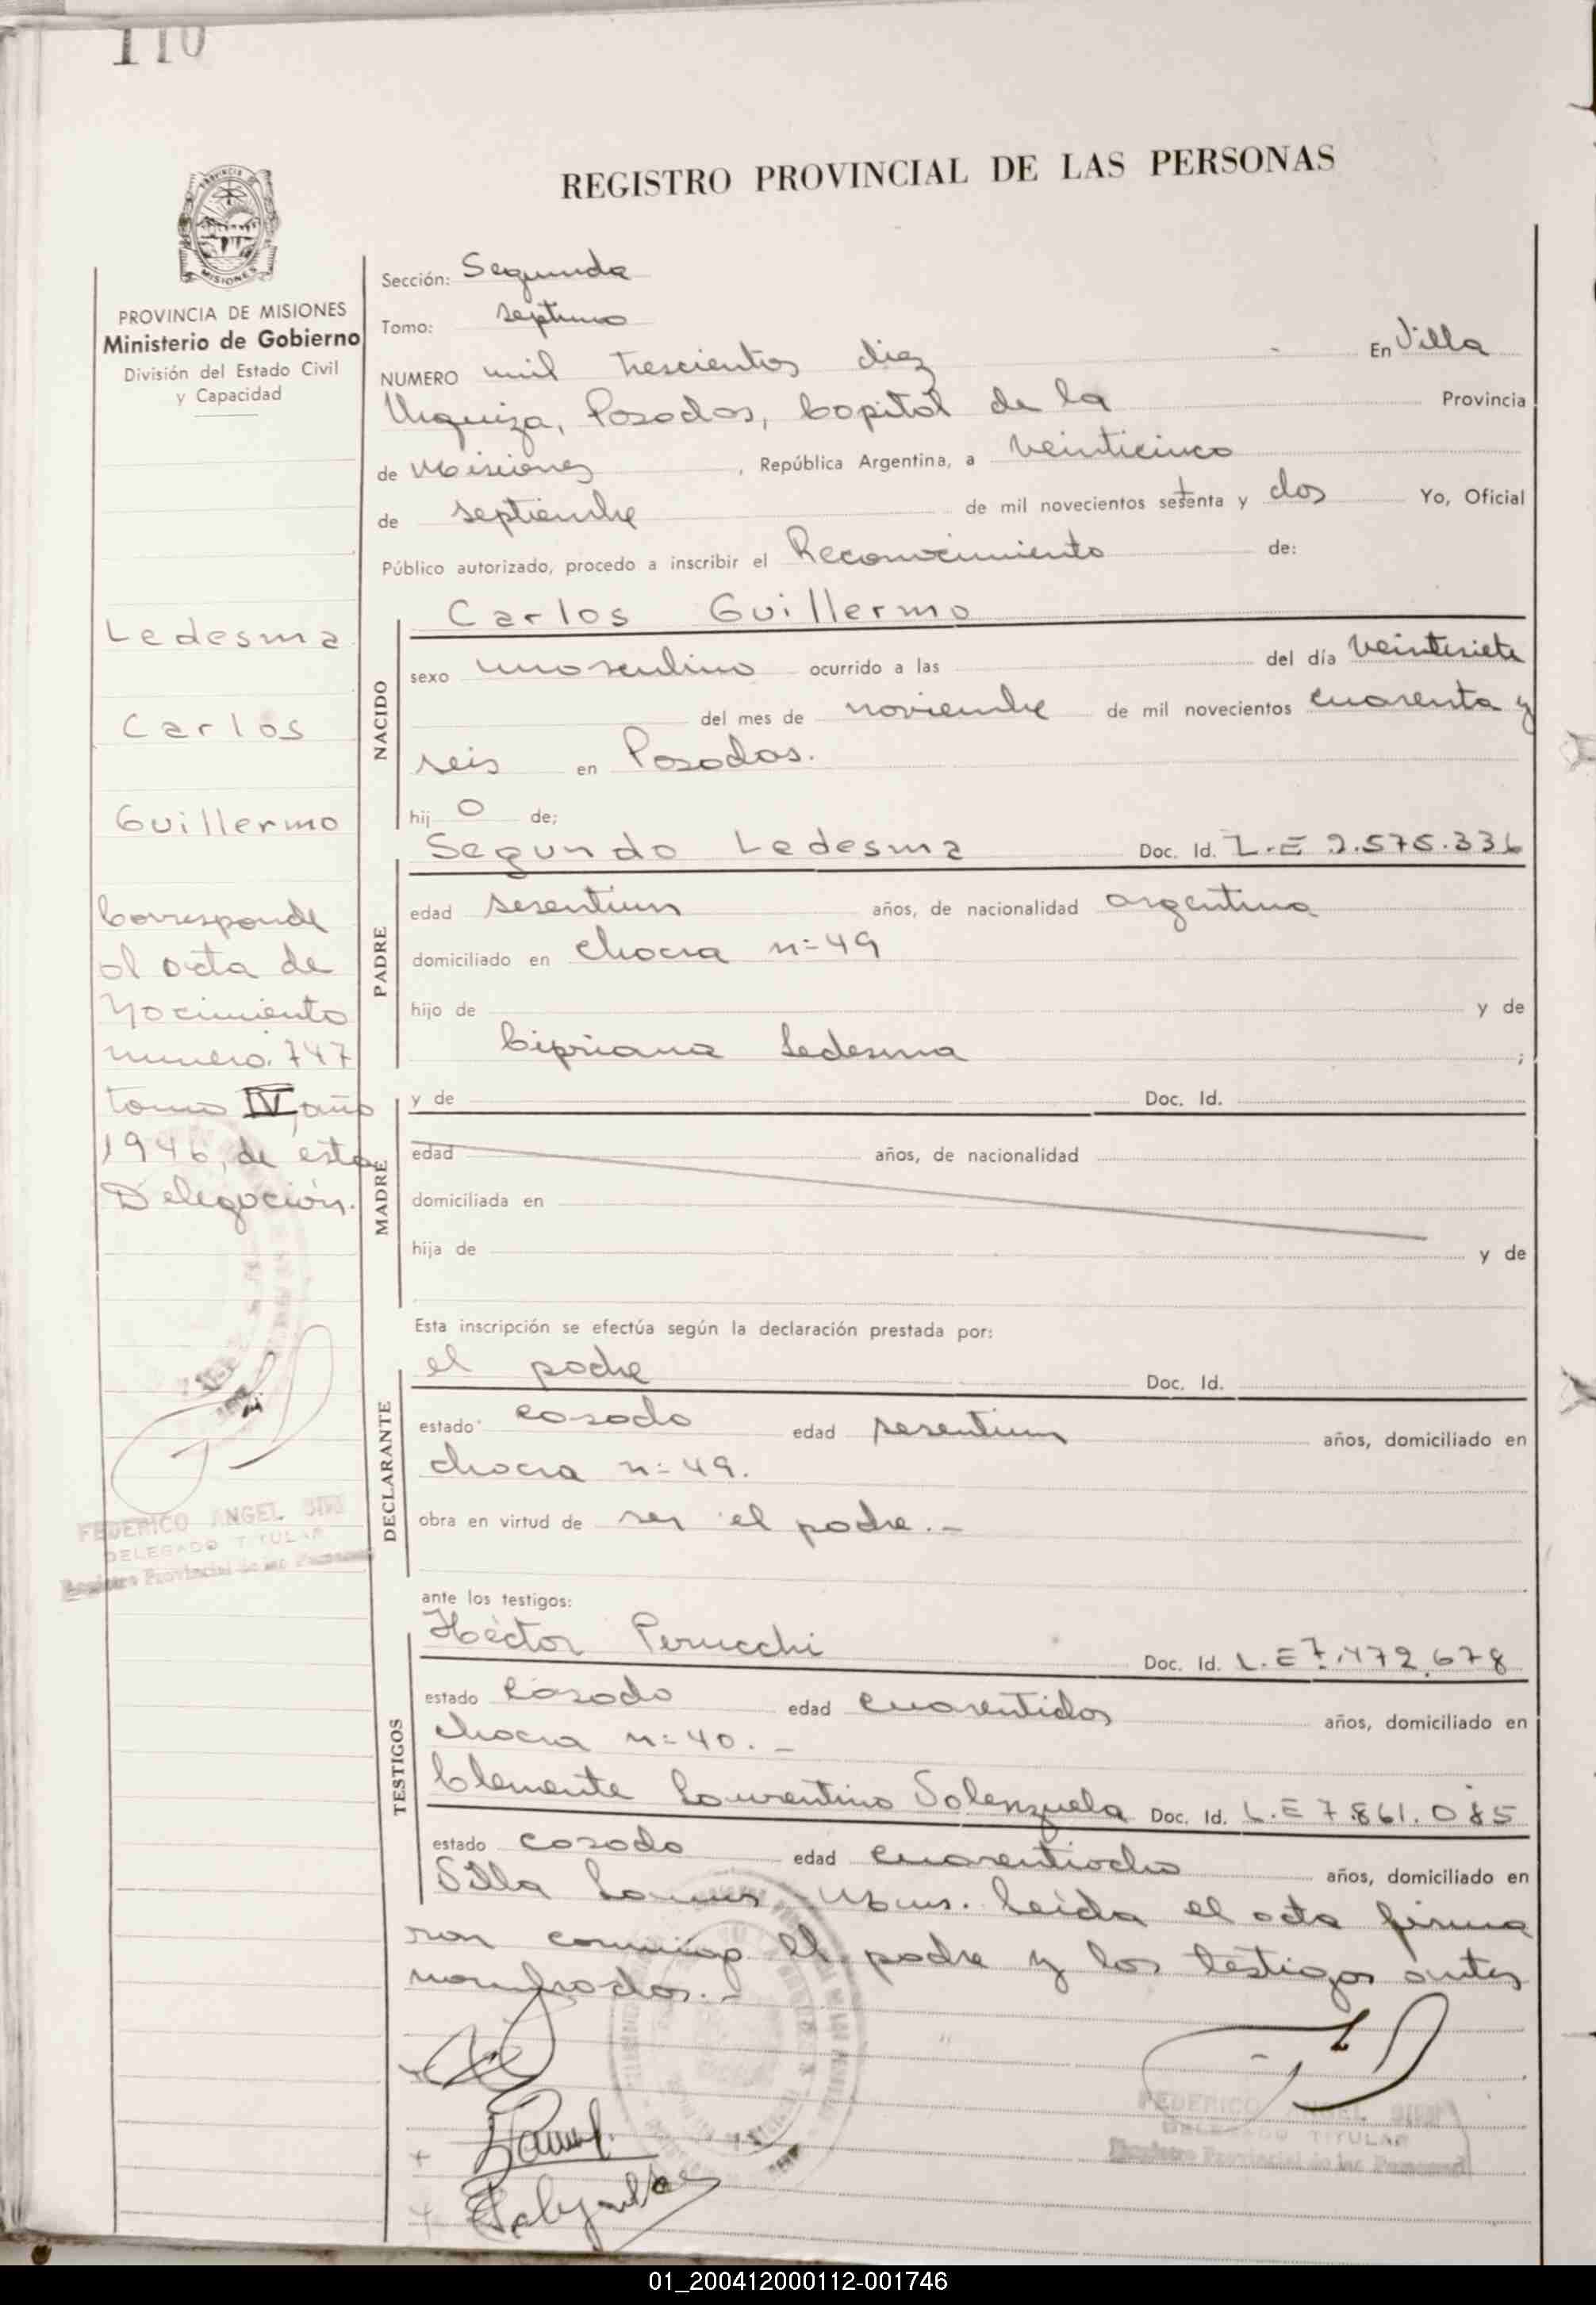 110
REGISTRO PROVINCIAL DE LAS PERSONAS
MISIONES
PROVINCIA DE MISIONES
Ministerio de Gobierno
División del Estado Civil
y Capacidad
Ledesma
Carlos
Guillermo
Corresponde
al acta de
Nacimiento
numero 747
tomo IV, año
1946, de esta
Delegación.
FEDERICO ANGEL
DELEGADO TITULAR
Registro Provincial de las Personas
Sección: Segunda
Tomo: septimo
NUMERO mil trescientos diez En Villa
Urquiza, Posadas, Capital de la Provincia
de Misiones, República Argentina, a veinticinco
de septiembre de mil novecientos setenta y dos Yo, Oficial
Público autorizado, procedo a inscribir el Reconocimiento de:
NACIDO
Carlos Guillermo
sexo masculino ocurrido a las del día veintisiete
del mes de noviembre de mil novecientos cuarenta y
seis en Posadas.
hij o de;
PADRE
Segundo Ledesma Doc. Id. L.E 2.575.336
edad sesentiun años, de nacionalidad argentina
domiciliado en chacra n=49
hijo de y de
Cipriana Ledesma ;
MADRE
y de Doc. Id.
edad años, de nacionalidad
domiciliada en
hija de y de
Esta inscripción se efectúa según la declaración prestada por:
DECLARANTE
el padre Doc. Id.
estado casado edad sesentiun años, domiciliado en
chacra n=49.
obra en virtud de ser el padre.-
ante los testigos:
TESTIGOS
Héctor Perucchi Doc. Id. L.E 7.472.678
estado casado edad cuarentidos años, domiciliado en
chacra n=40.-
Clemente Laurentino Valenzuela Doc. Id. L.E 7.861.085
estado casado edad cuarentiocho años, domiciliado en
Villa Lanus - Mnes. Leida el acta firma
ron conmigo el padre y los testigos antes
nombrados.-
FEDERICO ANGEL
DELEGADO TITULAR
Registro Provincial de las Personas
01_200412000112-001746